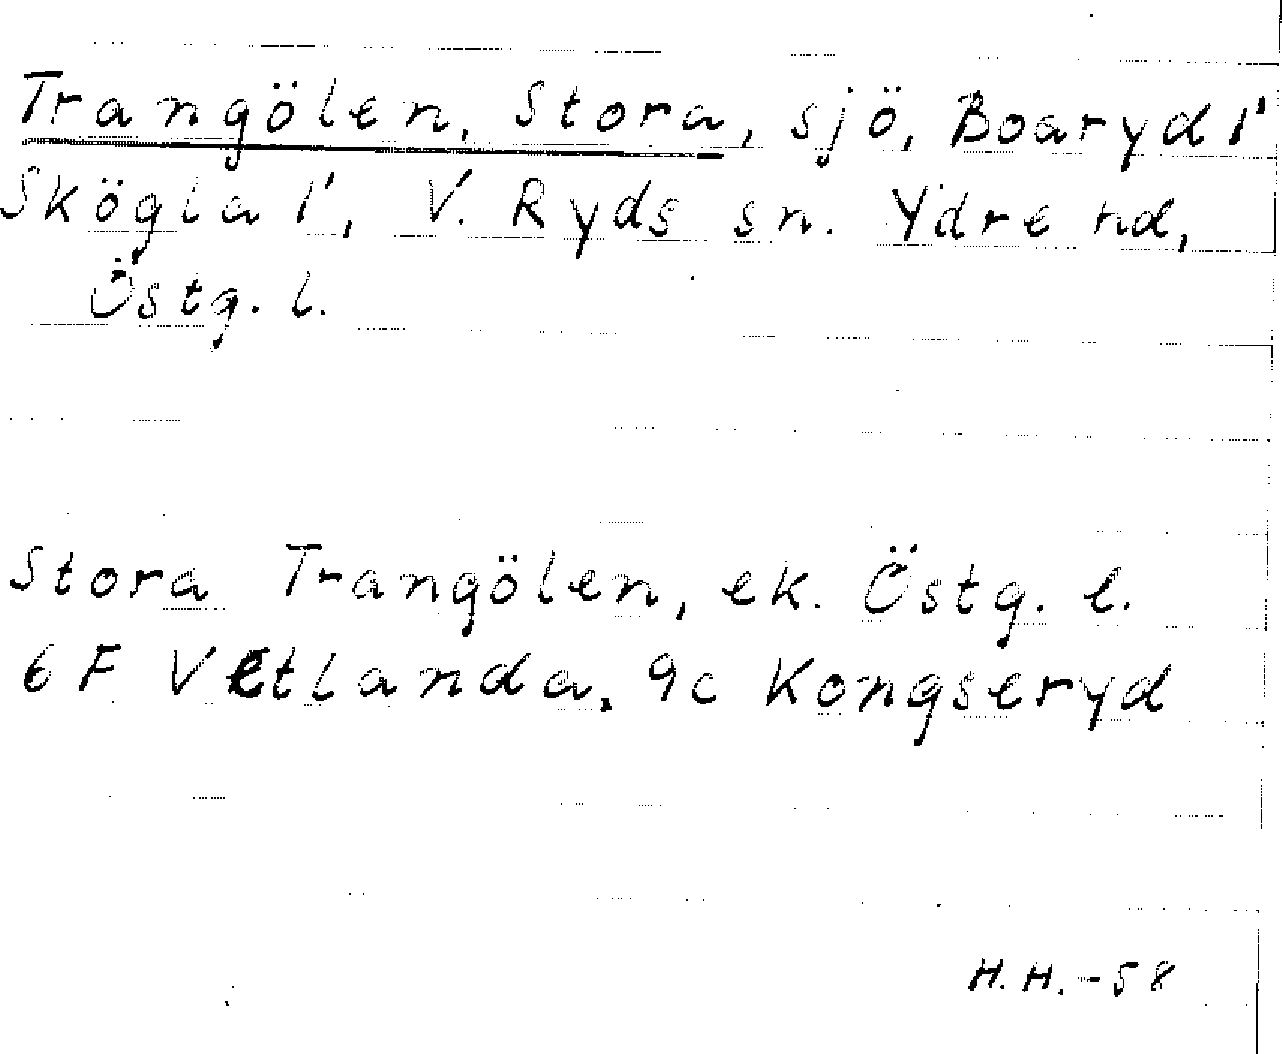 Trangölen, Stora, sjö, Boaryd 1'
Skögla 1', V. Ryds sn. Ydre hd,
Östg. l.
Stora Trangölen, ek. Östg. l.
6 F Vetlanda, 9c Kongseryd
H.H. -58